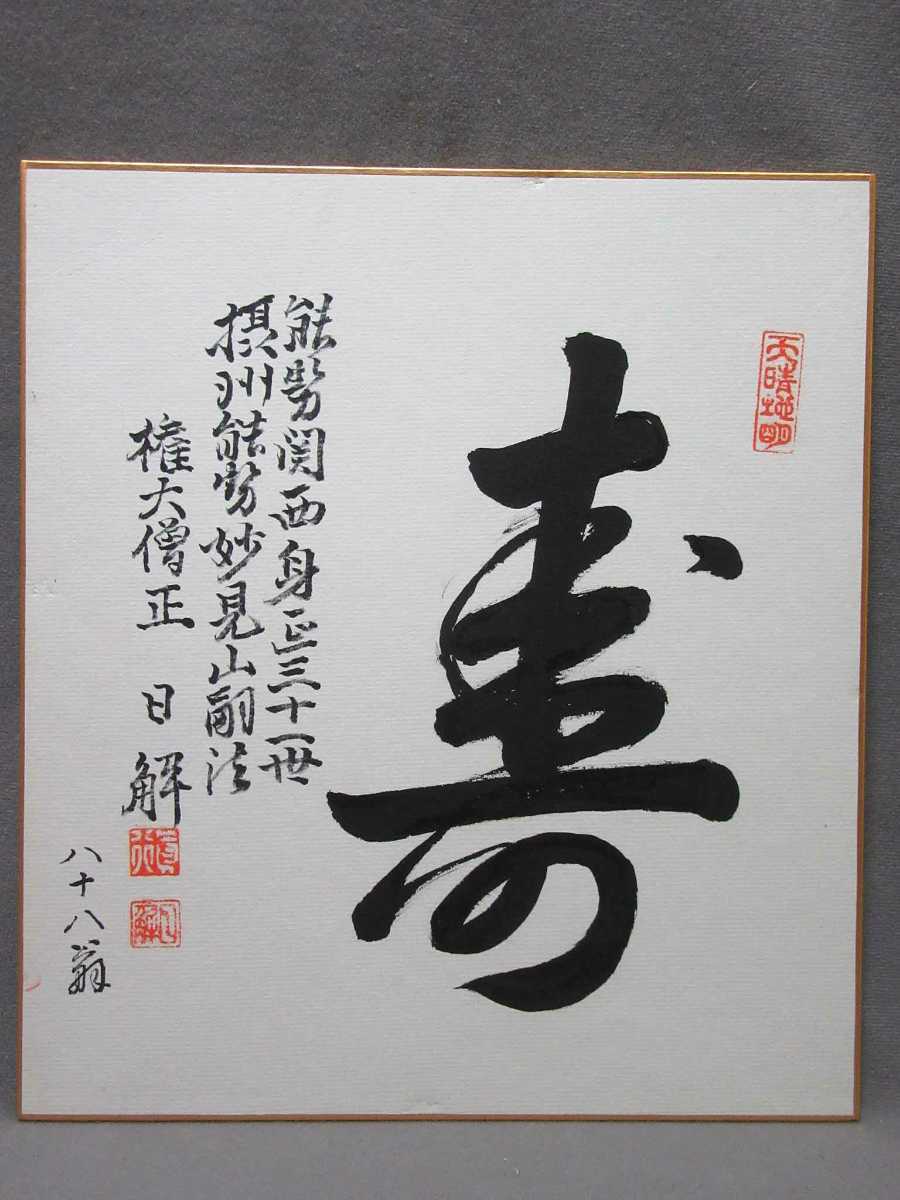 天時地明
寿
能勢関西身延三十一世
摂州能勢妙見山嗣法
権大僧正 日解
八十八翁